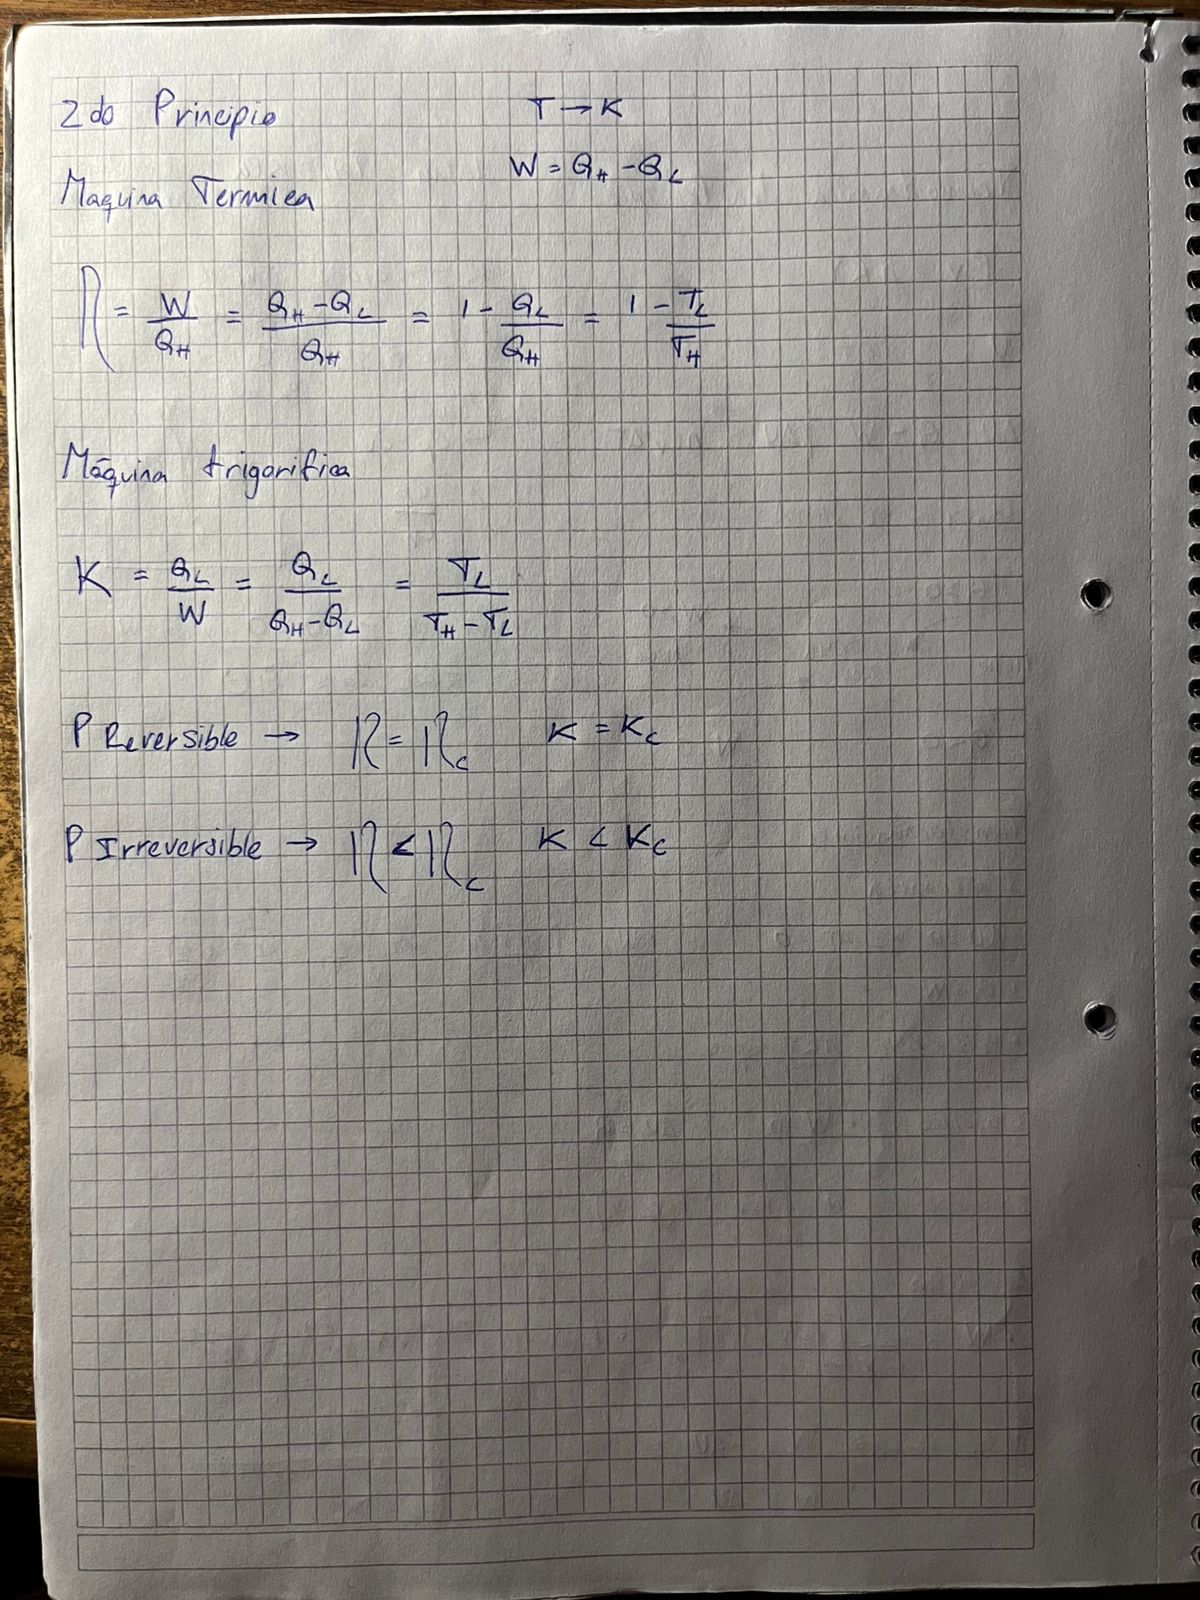 2do Principio T → K
W = Q_H - Q_L
Maquina Termica
η = W/Q_H = (Q_H - Q_L)/Q_H = 1 - Q_L/Q_H = 1 - T_L/T_H
Máquina frigorifica
K = Q_L/W = Q_L/(Q_H - Q_L) = T_L/(T_H - T_L)
P Reversible → η = η_c K = K_c
P Irreversible → η < η_c K < K_c